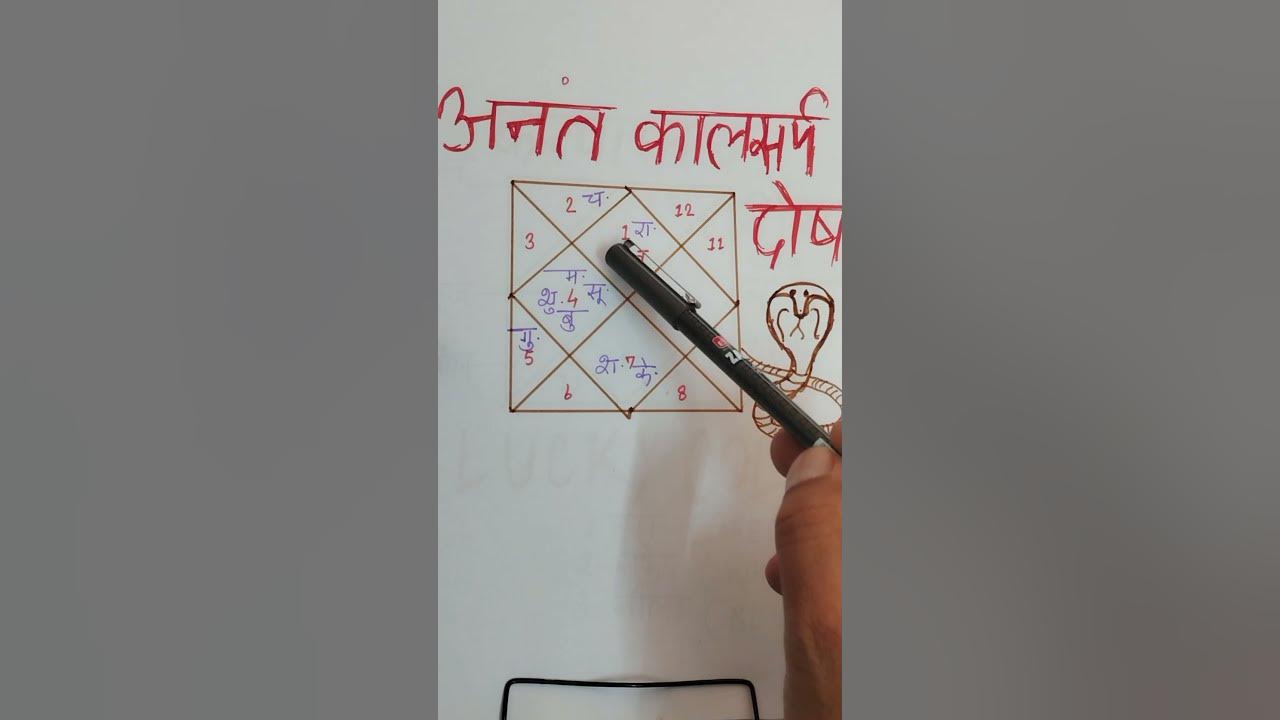 अनंत कालसर्प
दोष
2 च.
12
3
1 रा.
11
म.
शु. 4 सू.
बु
गु.
5
श. 7 के.
6
8